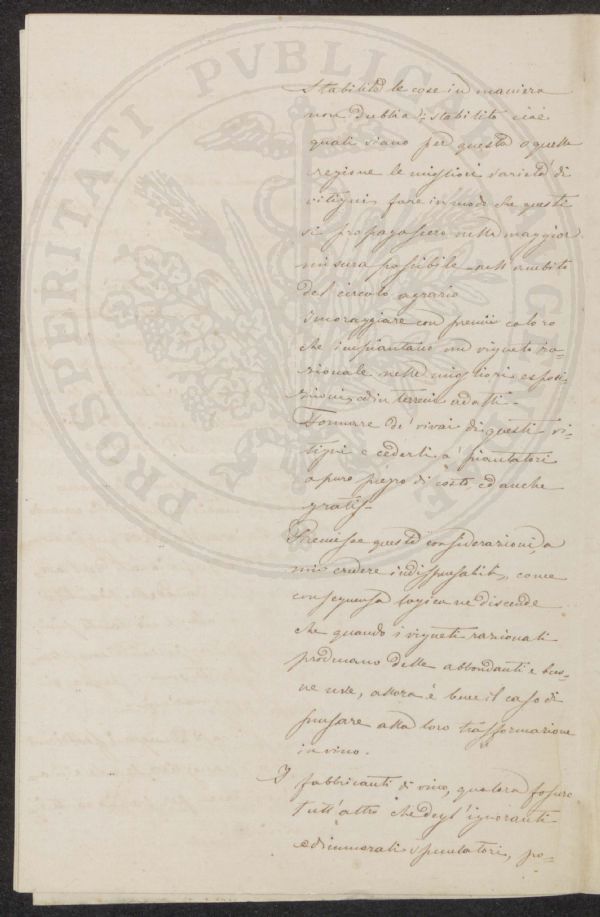 Stabilite le cose in maniera
non dubbia di stabilità cioè
quali siano per questa o quella
regione le migliori varietà di
vitigni, fare in modo che questi
si propagassero nella maggior
misura possibile nell'ambito
del circolo agrario
Incoraggiare con premii coloro
che impiantano un vigneto ra-
zionale nelle migliori esposi-
zioni, ed in terreni adatti.
Formare de' vivai di questi vi-
tigni e cederli a' piantatori
a puro prezzo di costo, ed anche
gratis.
Premesse queste considerazioni, a
mio credere indispensabili, come
conseguenza logica ne discende
che quando i vigneti razionali
producano delle abbondanti e buo-
ne uve, allora è bene il caso di
pensare alla loro trasformazione
in vino.
I fabbricanti di vino, qualora fossero
tutt'altro che degl'ignoranti
ed immorali speculatori, po-
PROSPERITATI PVBLICAE